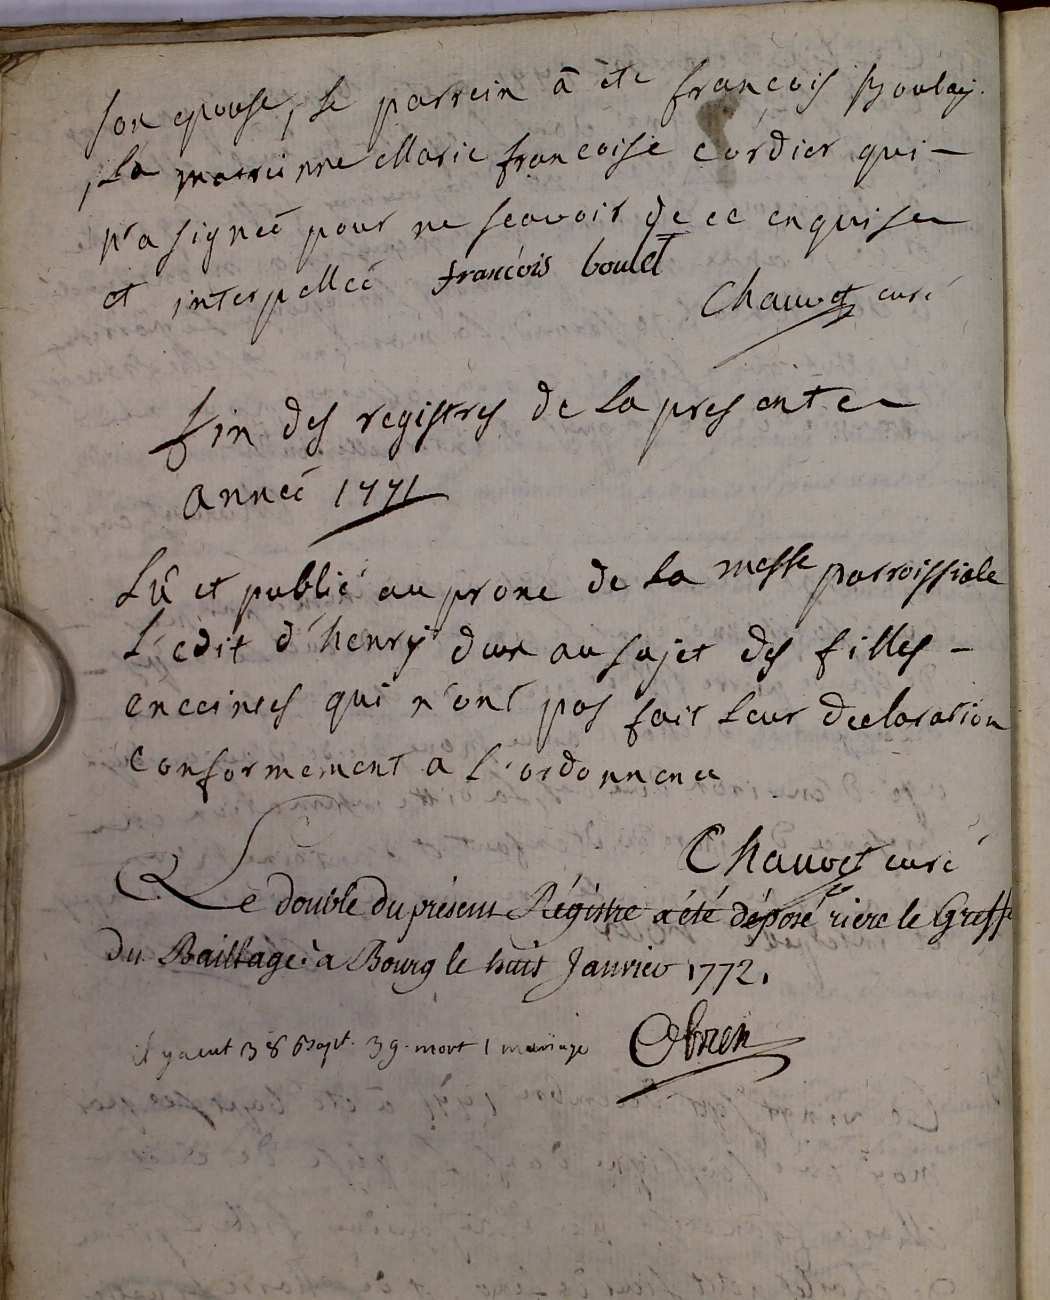 son epouse, le parrein à été francois Boulay.
, La marreinne Marie francoise cordier qui -
n'a signeé pour ne scavoir de ce enquise
et interpelleé francois boulet
Chauvet curé
fin des registres de La presente
anneé 1771
Lû et publié au prone de La messe parroissiale
L'edit d'henry deux au sujet des filles -
enceintes qui n'ont pas fait Leur declaration
conformement a L'ordonnence
Chauvet curé
Le double du présent Régistre a été déposé riere le Greffe
du Baillage à Bourg le huit Janvier 1772.
il y a eut 38 Bapt. 39. mort 1 mariage